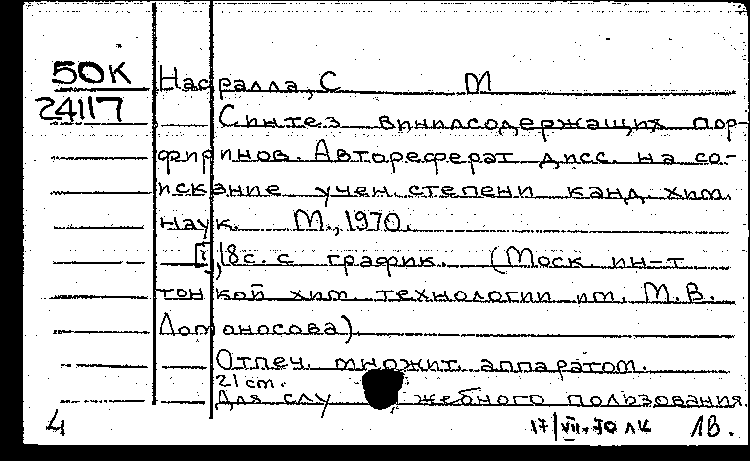 50К Насралла, С М
24117 Синтез винилсодержащих пор-
фиринов. Автореферат дисс. на со-
искание учен. степени канд. хим.
наук. М., 1970.
18с. с график. (Моск. ин-т
тонкой хим. технологии им. М.В.
Ломоносова)
Отпеч. множит. аппаратом.
21 cm.
Для служебного пользования.
4 17/VII-70 ЛК 1В.